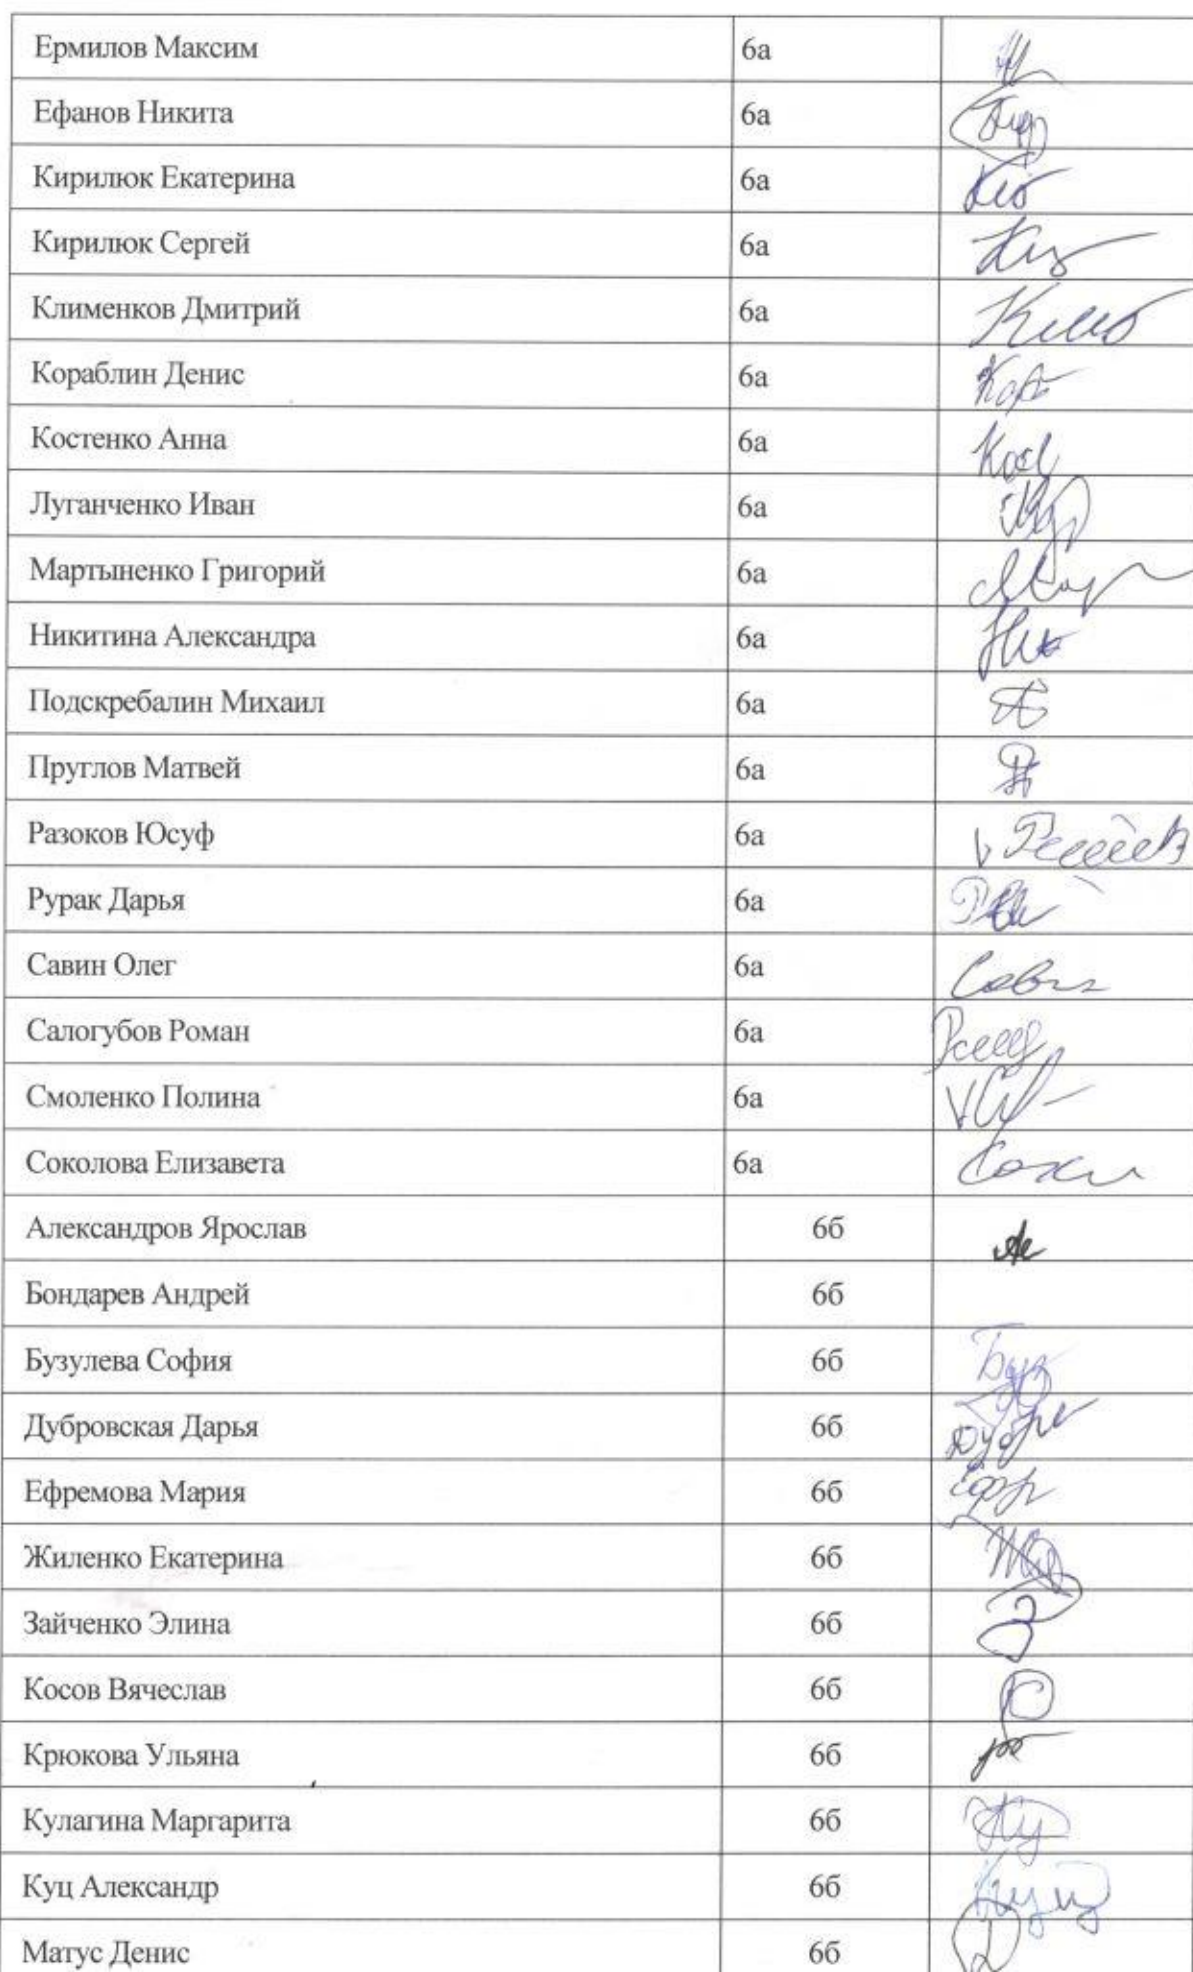 Ермилов Максим 6а
Ефанов Никита 6а
Кирилюк Екатерина 6а
Кирилюк Сергей 6а
Клименков Дмитрий 6а
Кораблин Денис 6а
Костенко Анна 6а
Луганченко Иван 6а
Мартыненко Григорий 6а
Никитина Александра 6а
Подскребалин Михаил 6а
Пруглов Матвей 6а
Разоков Юсуф 6а
Рурак Дарья 6а
Савин Олег 6а
Салогубов Роман 6а
Смоленко Полина 6а
Соколова Елизавета 6а
Александров Ярослав 6б
Бондарев Андрей 6б
Бузулева София 6б
Дубровская Дарья 6б
Ефремова Мария 6б
Жиленко Екатерина 6б
Зайченко Элина 6б
Косов Вячеслав 6б
Крюкова Ульяна 6б
Кулагина Маргарита 6б
Куц Александр 6б
Матус Денис 6б